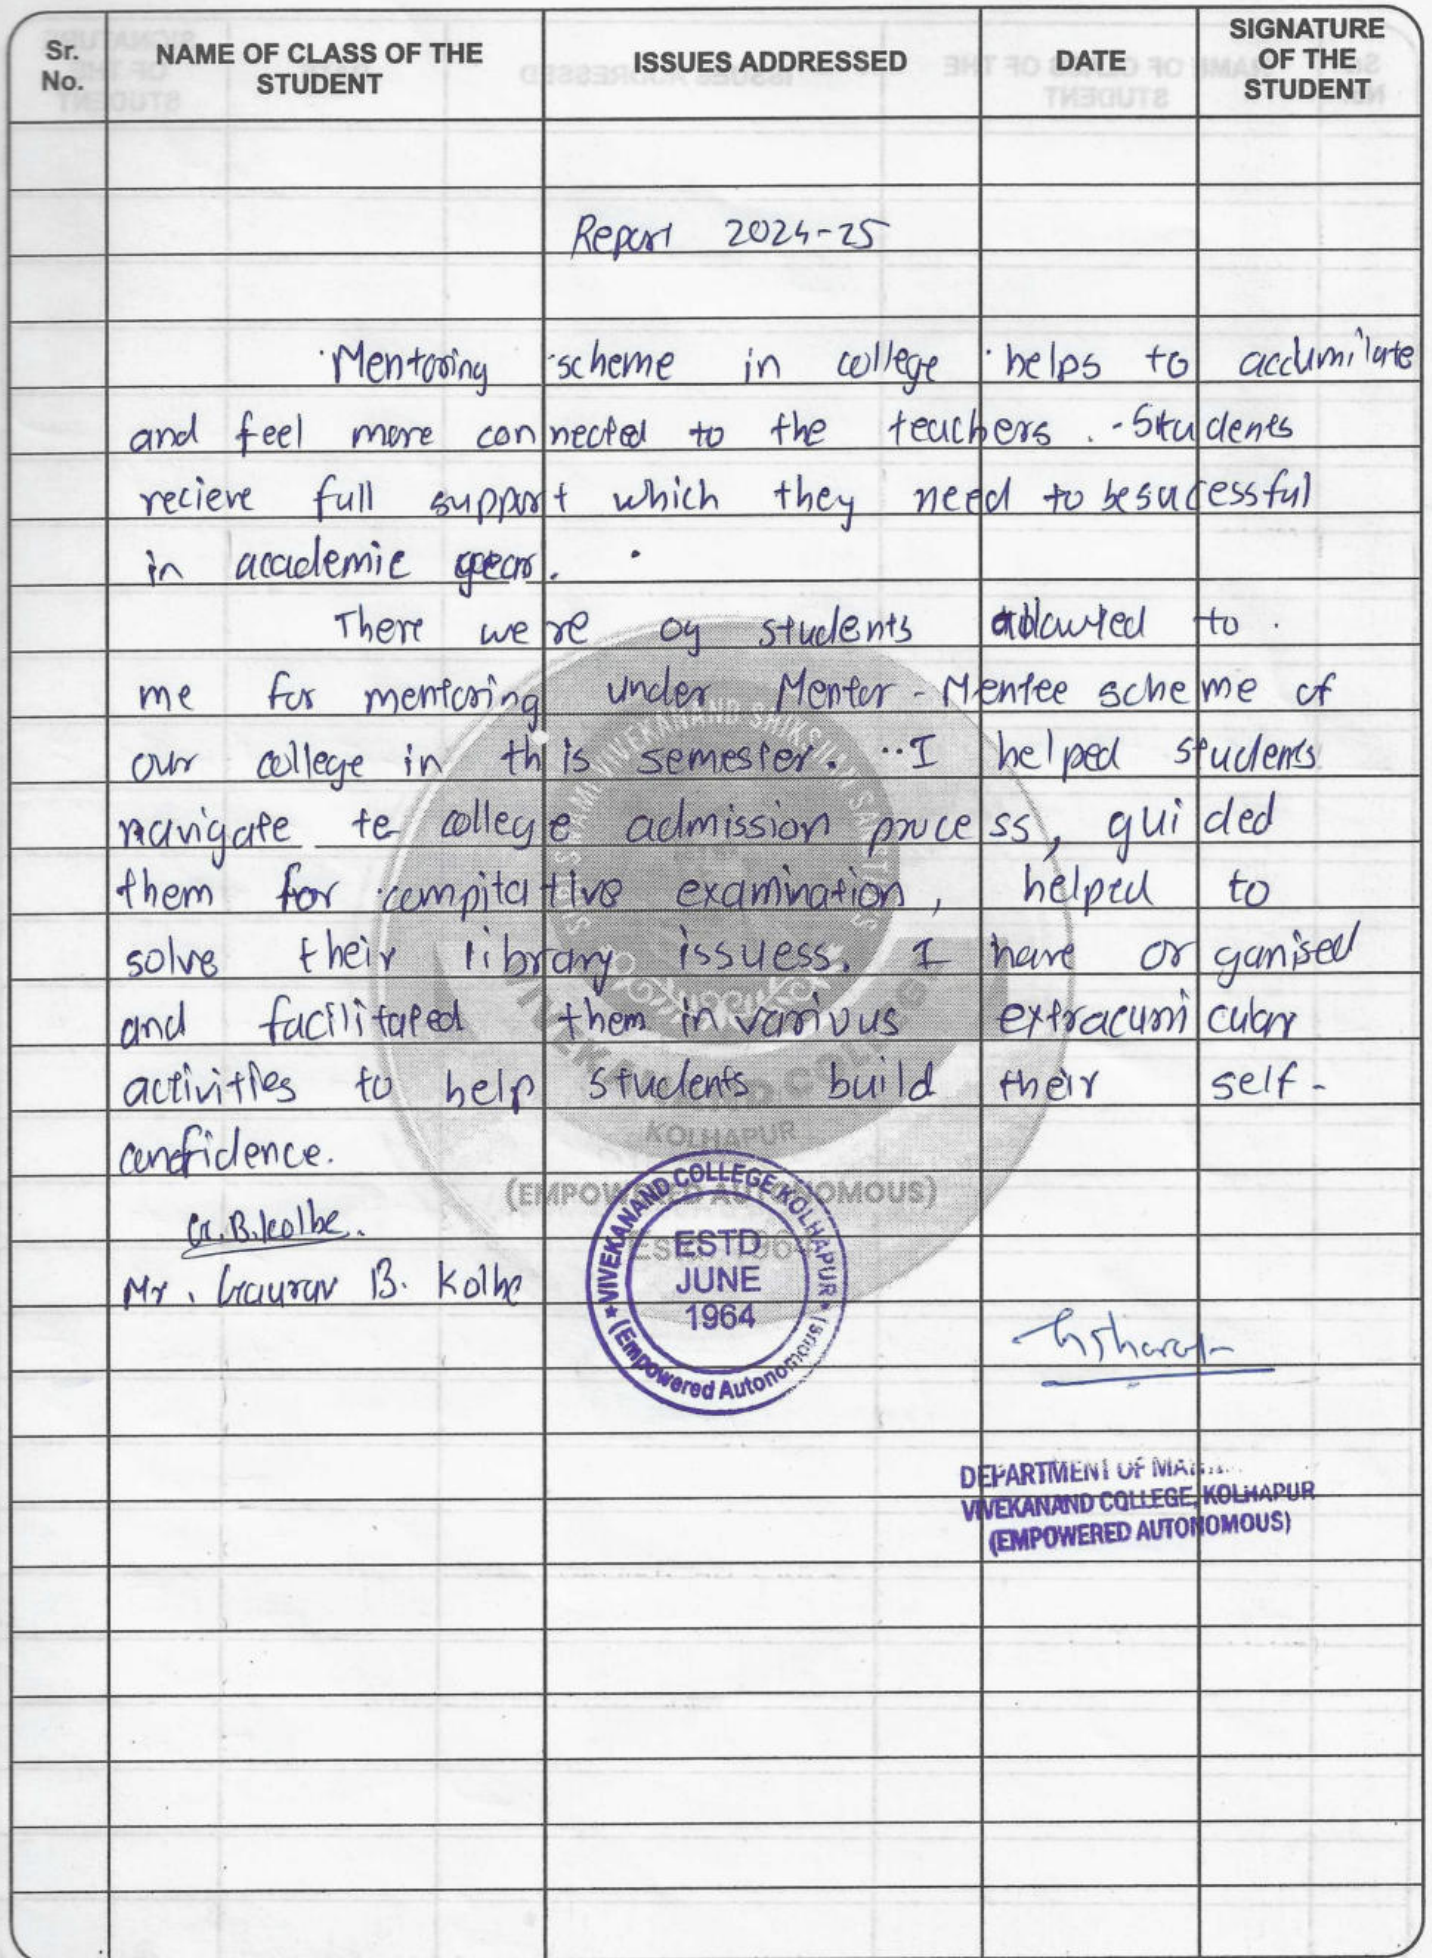 Sr. No. NAME OF CLASS OF THE STUDENT ISSUES ADDRESSED DATE SIGNATURE OF THE STUDENT
Report 2024-25
Mentoring scheme in college helps to accumilate
and feel more connected to the teachers. Students
recieve full support which they need to be sucessful
in academic year.
There were 09 students to
me for mentoring under Mentor-Mentee scheme of
our college in this semester. I helped students
navigate te college admission process, guided
them for compitative examination, helped to
solve their library issuess. I have organised
and facilitated them in various extracurricular
activities to help students build their self-
confidence.
G.B.Kolbe.
Mr. Gaurav B. Kolbe
SHRI SWAMI VIVEKANAND SHIKSHAN SANSTHA'S
VIVEKANAND COLLEGE
KOLHAPUR
(EMPOWERED AUTONOMOUS)
ESTD. 1964
VIVEKANAND COLLEGE KOLHAPUR
(Empowered Autonomous)
ESTD
JUNE
1964
DEPARTMENT OF
VIVEKANAND COLLEGE, KOLHAPUR
(EMPOWERED AUTONOMOUS)